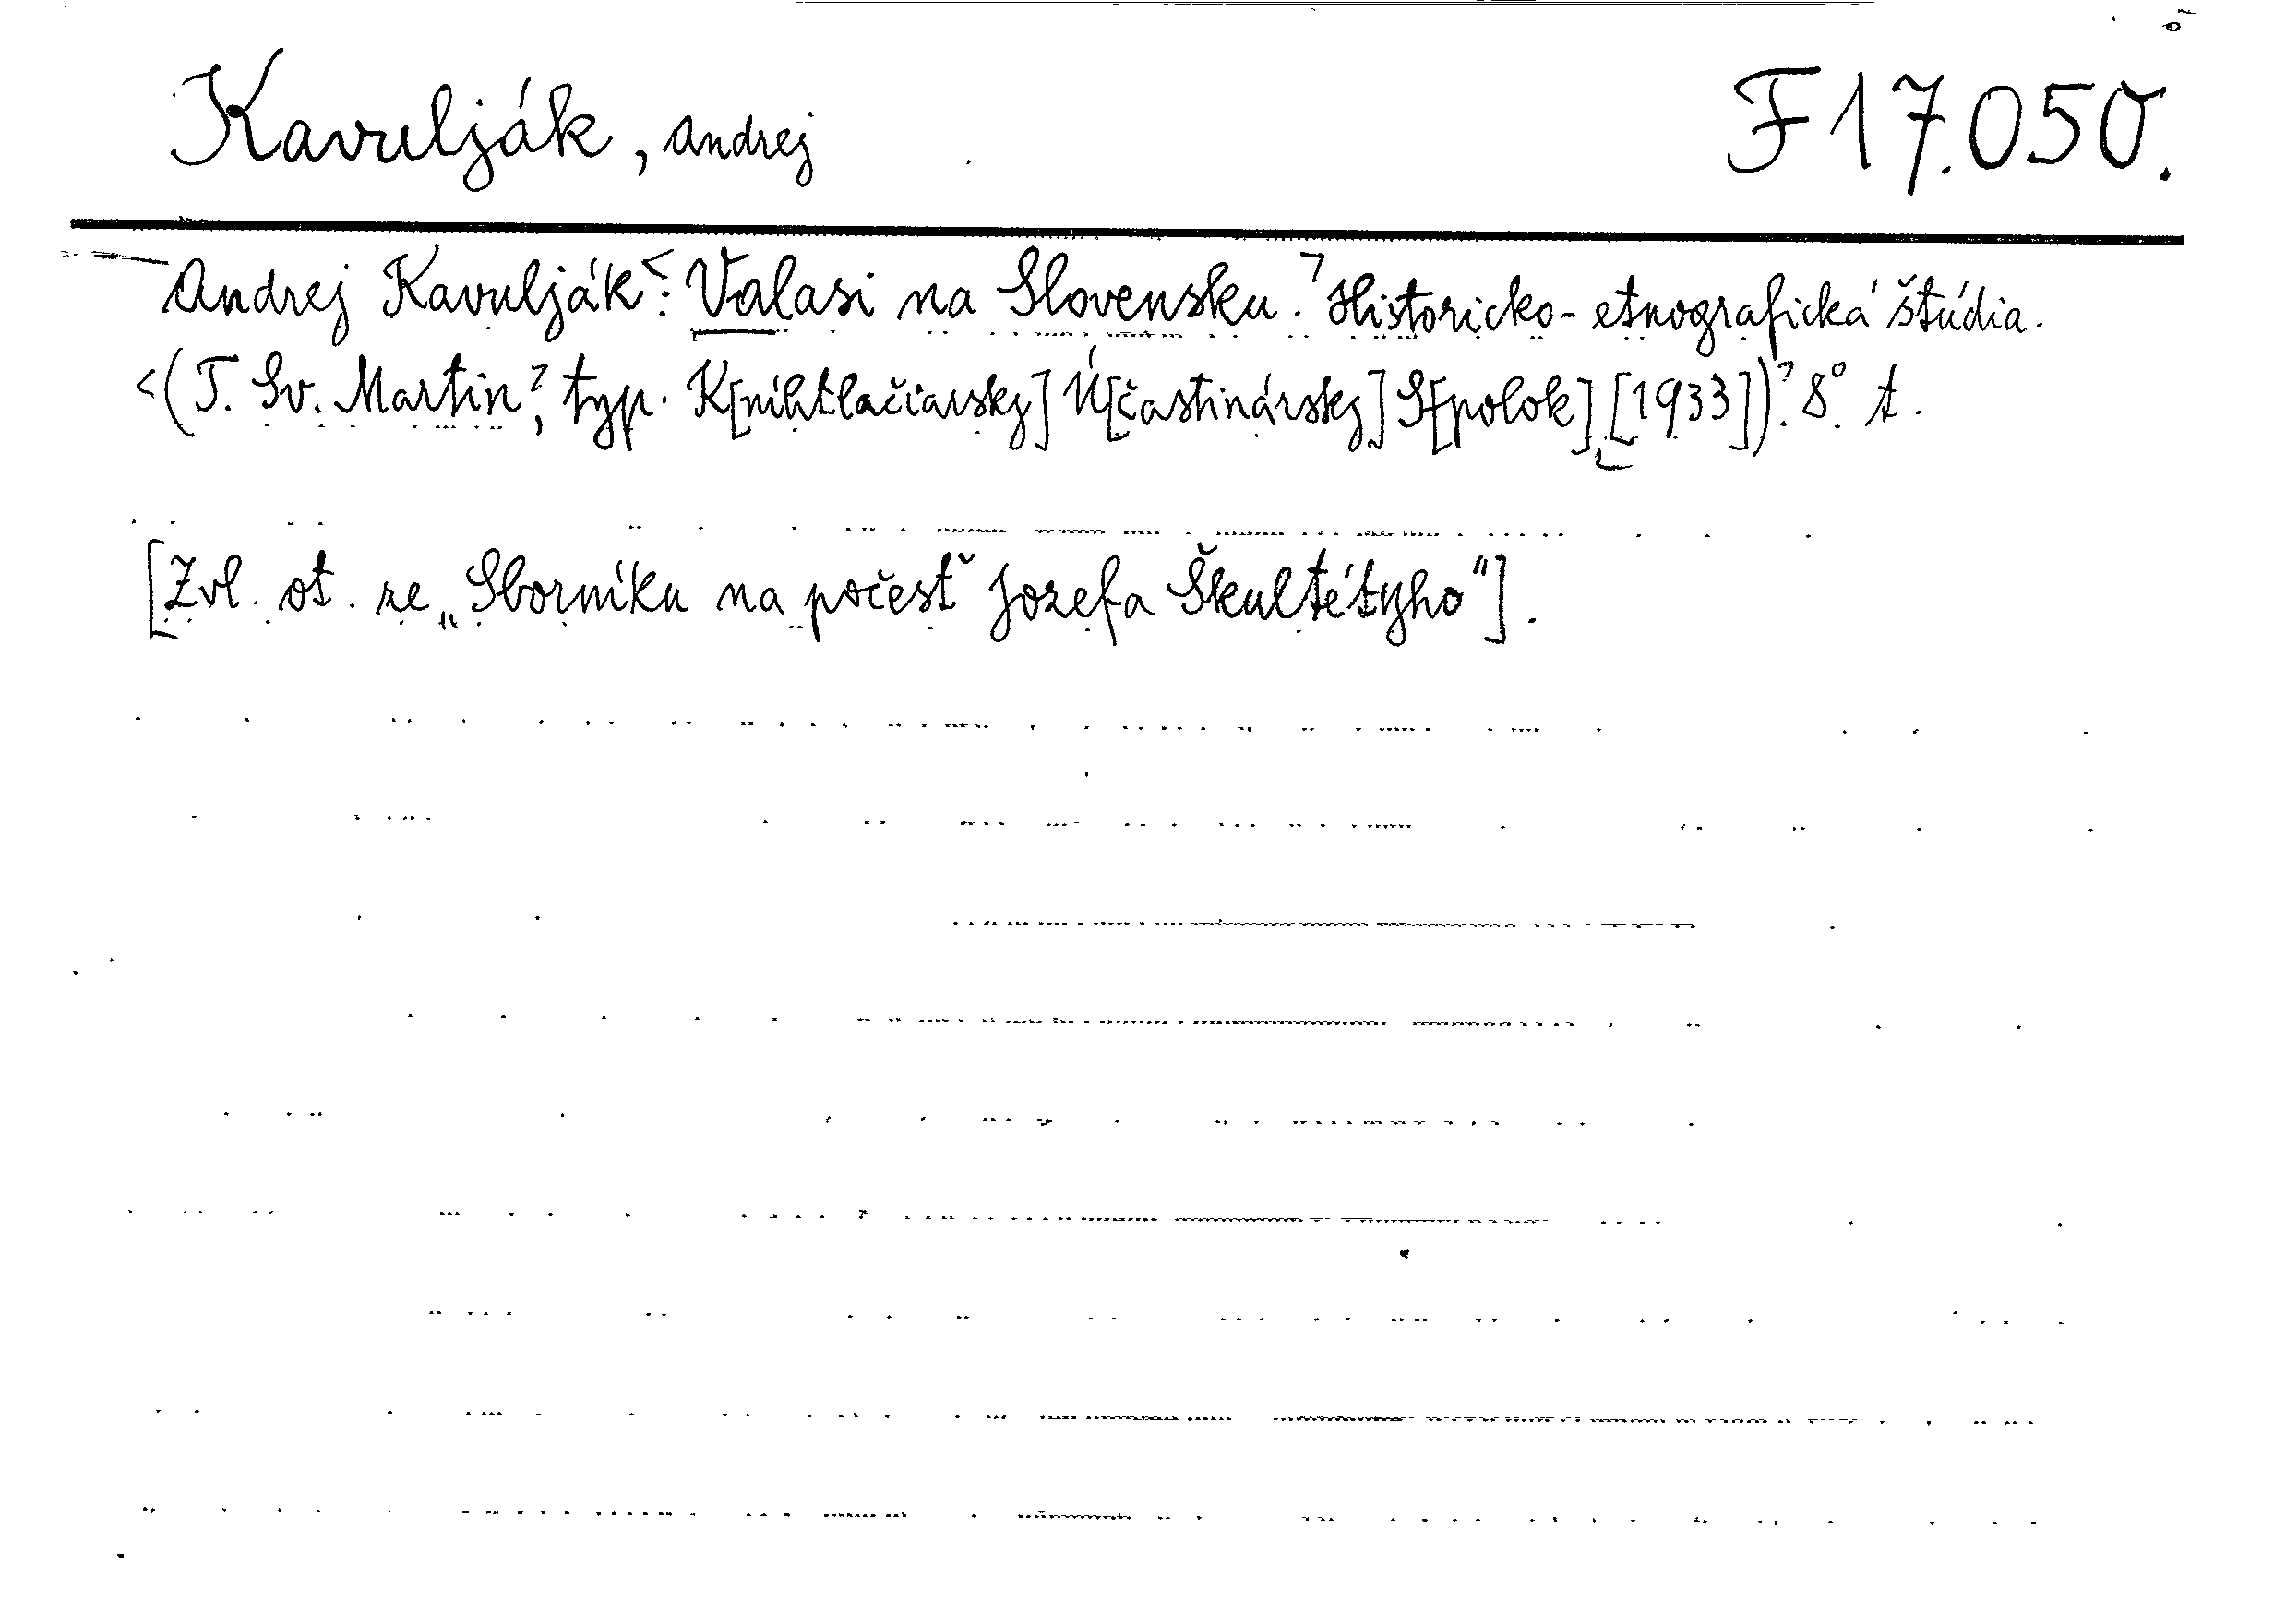 Kavulják, Andrej F 17.050.
Andrej Kavulják<: Valasi na Slovensku.> Historicko-etnografická štúdia.
<(T. Sv. Martin>, typ. K[níhtlačiarsky] Ú[častinársky] S[polok] [1933])> 8° t.
[Zvl. ot. ze „Sborníku na počesť Jozefa Škultétyho"].